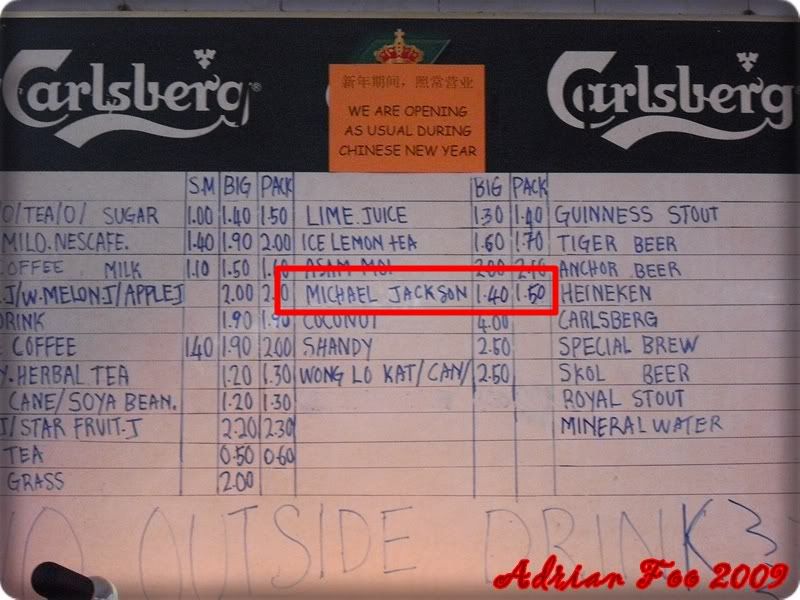 Carlsberg
Carlsberg
新年期间，照常营业
WE ARE OPENING
AS USUAL DURING
CHINESE NEW YEAR
S.M BIG PACK BIG PACK
O/TEA/O/ SUGAR 1.00 1.40 1.50 LIME.JUICE 1.30 1.40 GUINNESS STOUT
MILO.NESCAFE. 1.40 1.90 2.00 ICE LEMON TEA 1.60 1.70 TIGER BEER
COFFEE MILK 1.10 1.50 ASAM ANCHOR BEER
J/W.MELONJ/APPLEJ 2.00 MICHAEL JACKSON 1.40 1.50 HEINEKEN
DRINK 1.90 1.90 COCONUT 4.00 CARLSBERG
COFFEE 1.40 1.90 2.00 SHANDY 2.50 SPECIAL BREW
Y.HERBAL TEA 1.20 1.30 WONG LO KAT/CAN/ 2.50 SKOL BEER
CANE/SOYA BEAN. 1.20 1.30 ROYAL STOUT
J/STAR FRUIT.J 2.20 2.30 MINERAL WATER
TEA 0.50 0.60
GRASS 2.00
O OUTSIDE DRINK
Adrian Foo 2009